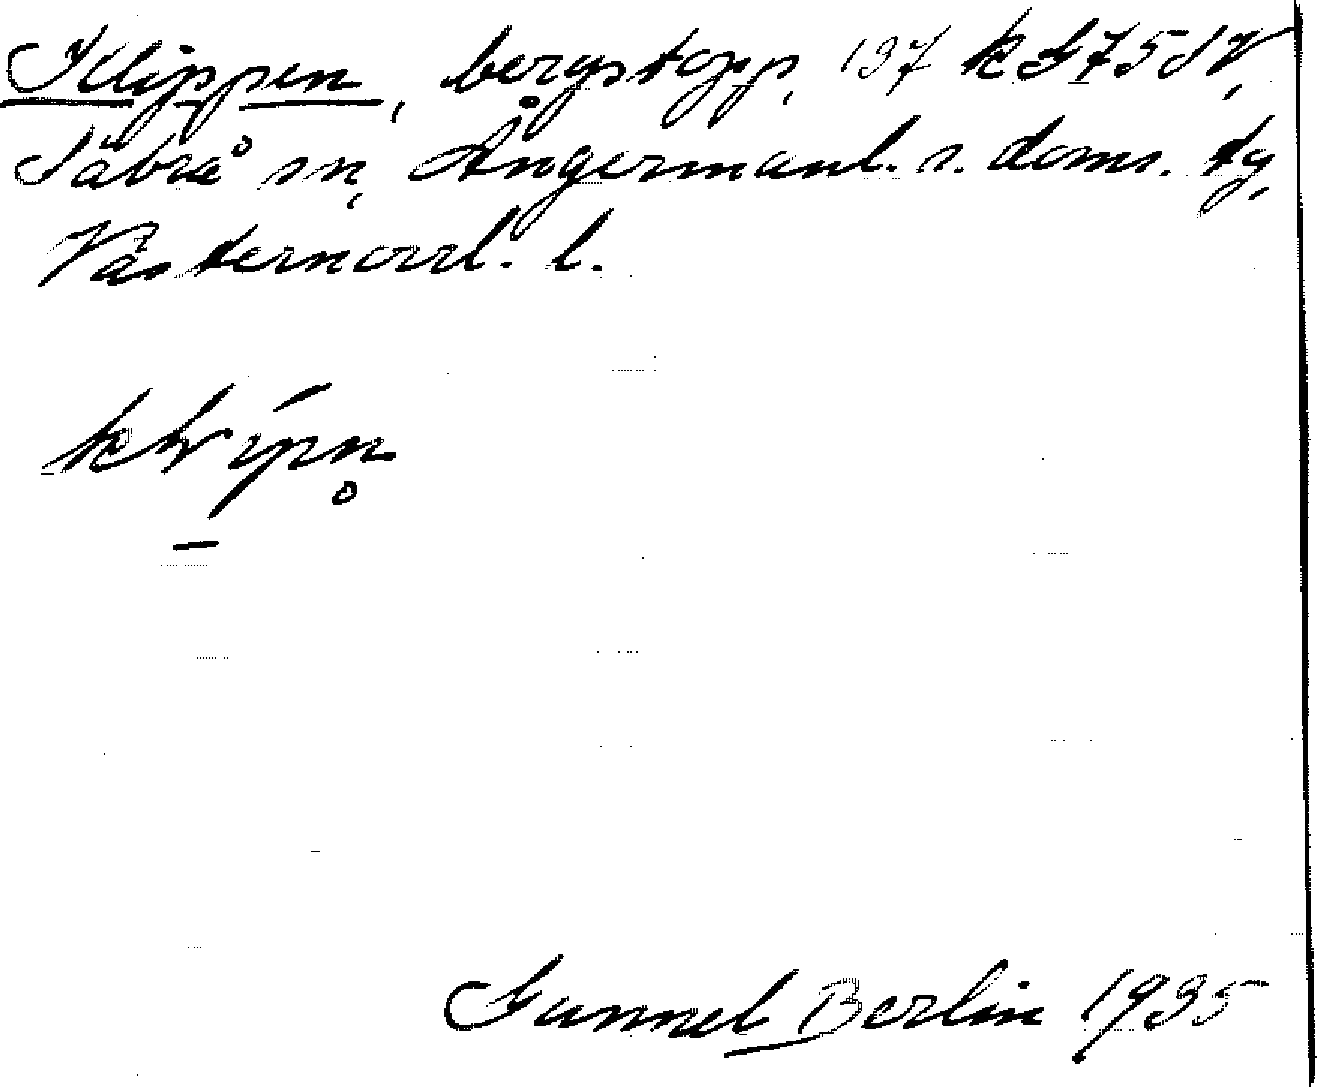 Klippen, bergstopp, 197 k S 75 SV,
Säbrå sn, Ångermanl. s. doms. tg,
Västernorrl. l.
Gunnel Berlin 1935